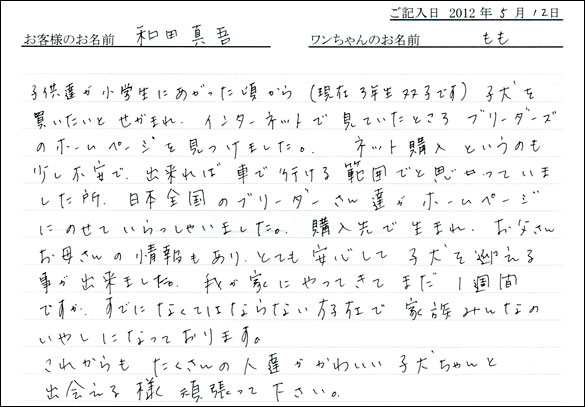 ご記入日 2012年5月12日
お客様のお名前 和田真吾 ワンちゃんのお名前 もも
子供達が小学生にあがった頃から(現在3年生双子です)子犬を
買いたいとせがまれ、インターネットで見ていたところブリーダーズ
のホームページを見つけました。 ネット購入というのも
少し不安で、出来れば車で行ける範囲でと思っていま
した所、日本全国のブリーダーさん達がホームページ
にのせていらっしゃいました。購入先で生まれ、お父さん
お母さんの情報もあり、とても安心して子犬を迎える
事が出来ました。我が家にやってきてまだ1週間
ですが、すでになくてはならない存在で家族みんなの
いやしになっております。
これからもたくさんの人達がかわいい子犬ちゃんと
出会える様頑張って下さい。